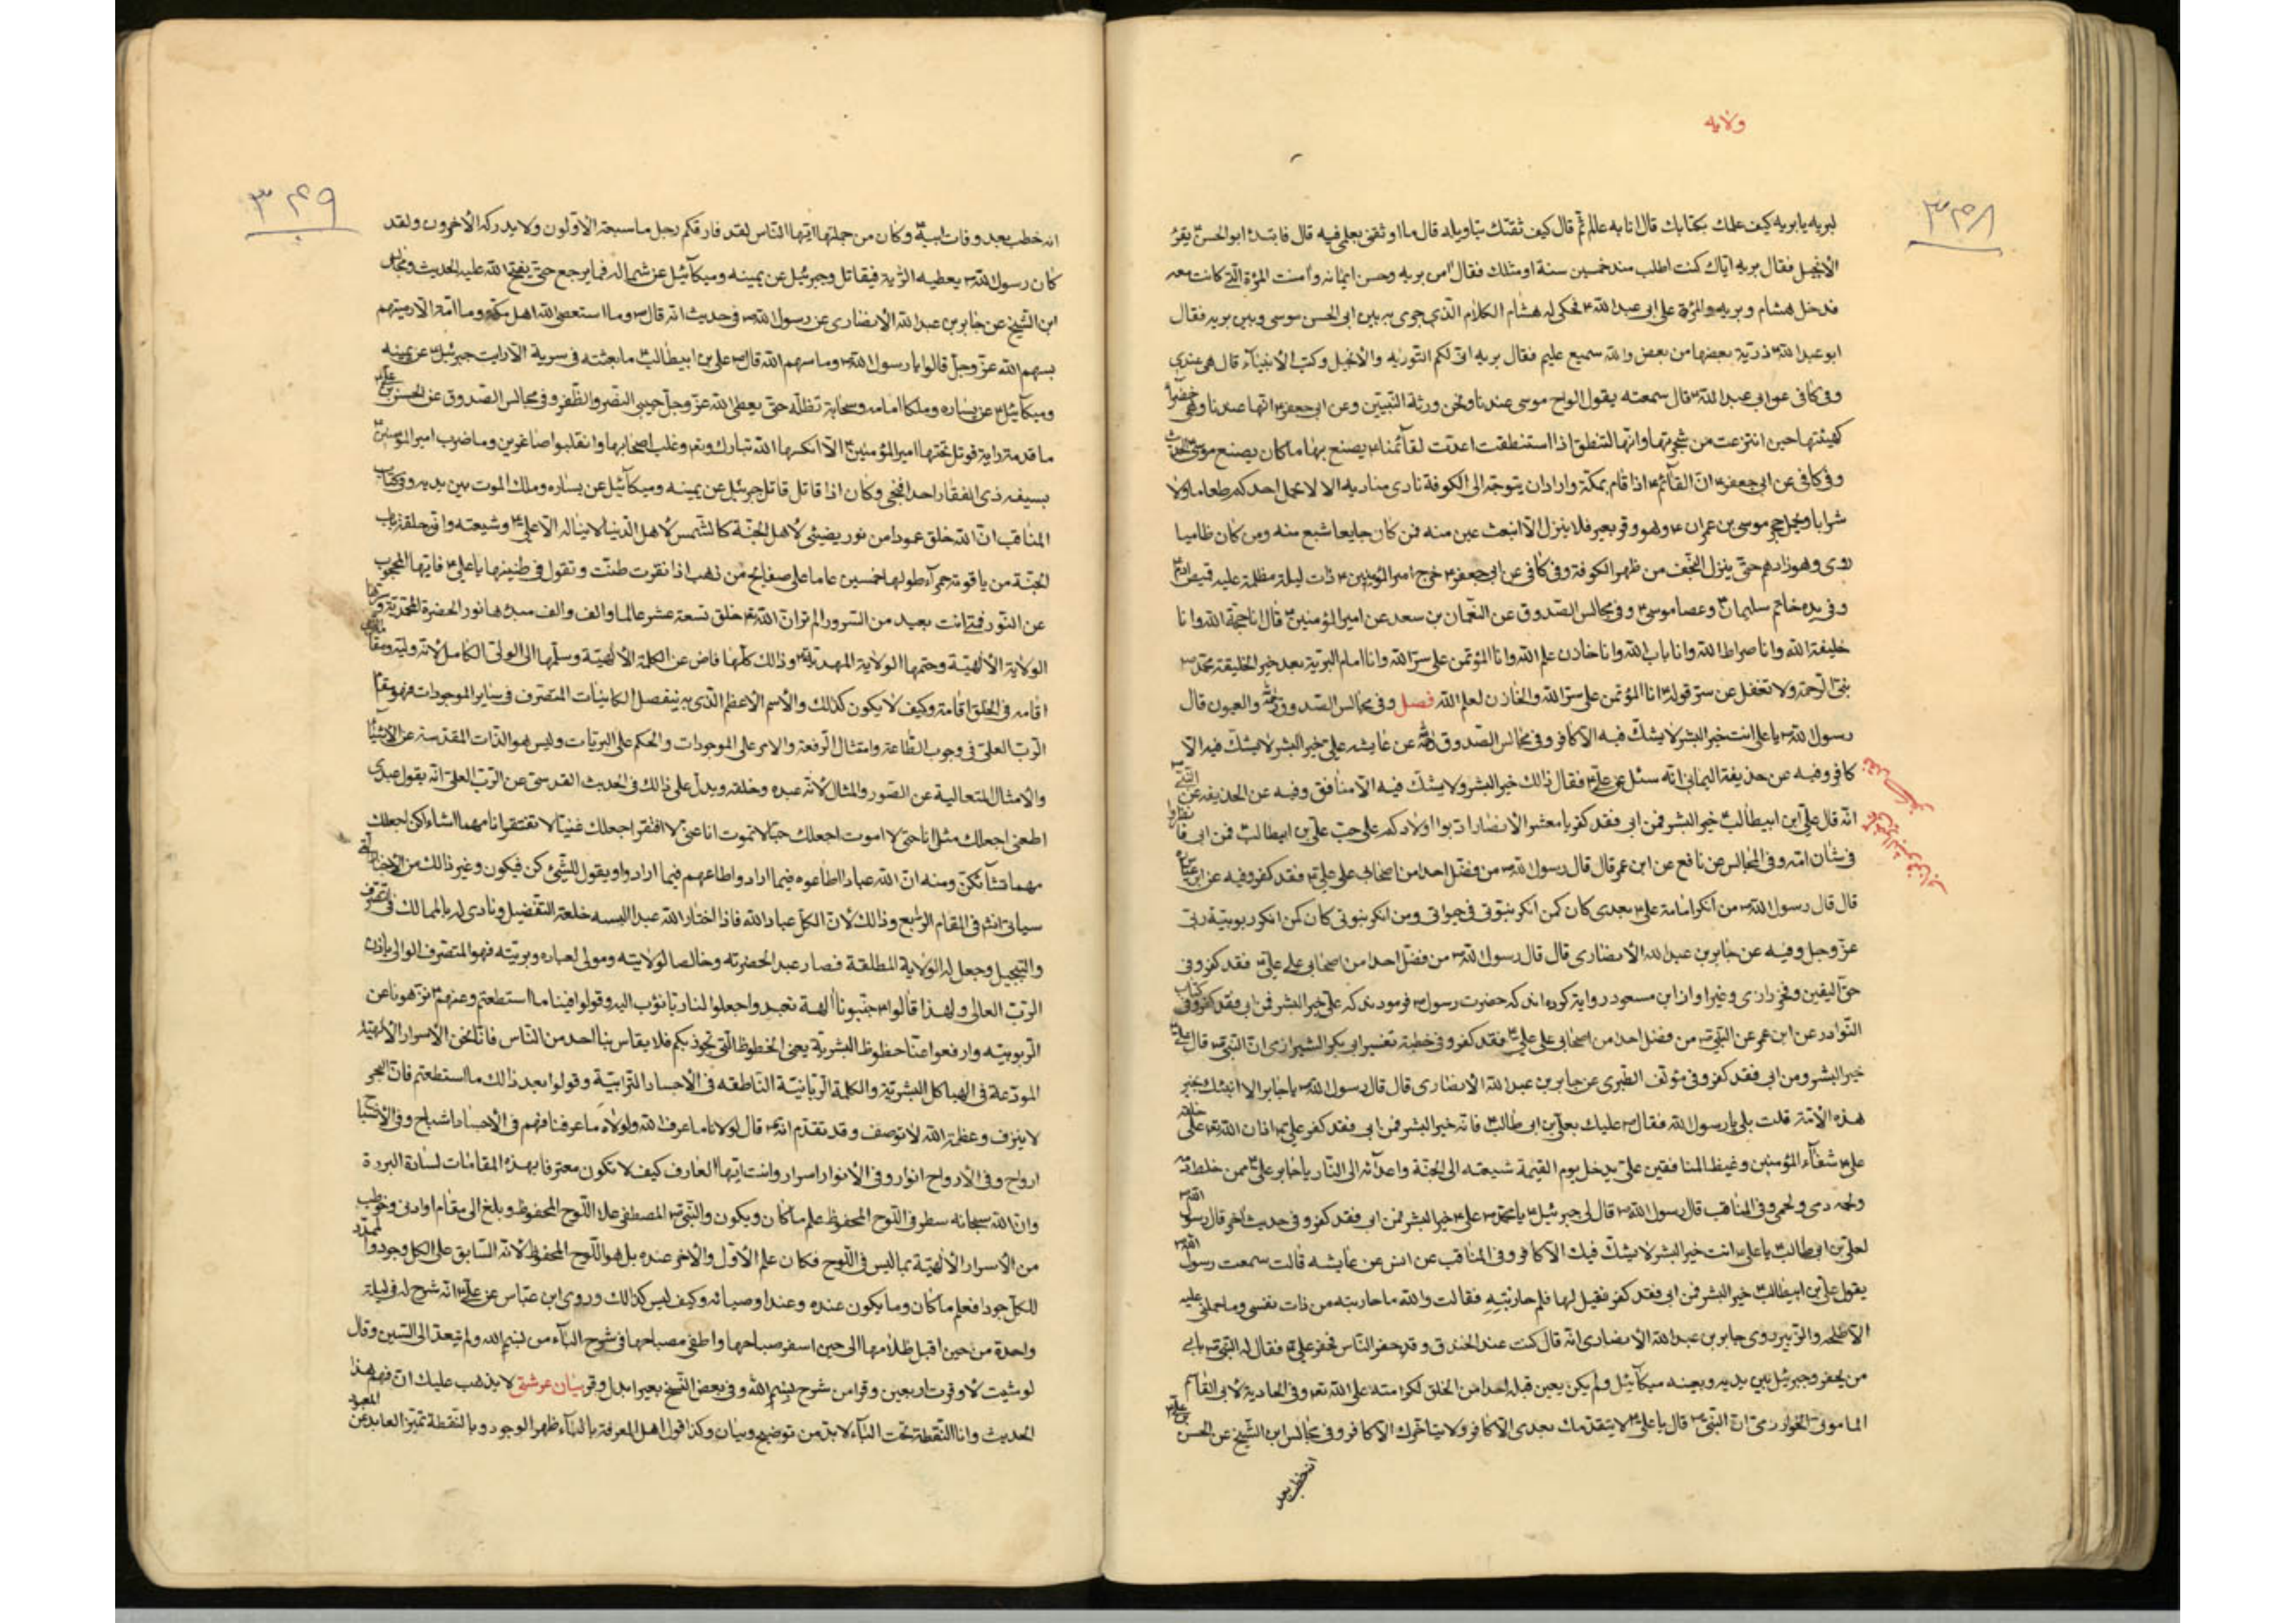 ولایه
۳۴۸
لبریه یا بریه کیف علمك بكتابك قال انا به عالم ثم قال كیف ثقتك بتاویله قال ما اوثقنی بعلمی فیه قال فابتدء ابو الحسن یقرء
الانجیل فقال بریه ایاك كنت اطلب منذ خمسین سنة او مثلك فقال امن بریه وحسن ایمانه وامنت المرئة التی كانت معه
فدخل هشام و بریه والمرئة علی ابی عبد الله فحكی له هشام الكلام الذی جری بین ابی الحسن موسی وبین بریه فقال
ابو عبد الله ذریة بعضها من بعض والله سمیع علیم فقال بریه انی لكم التوریه والانجیل وكتب الانبیاء قال هی عندنا
وفی كافی عن ابی عبد الله قال سمعته یقول الواح موسی عندنا ونحن ورثة النبیین وعن ابی جعفر انها عندنا وهی خضرآء
كهیئتها حین انتزعت من شجرتها وانها لتنطق اذا استنطقت اعدت لقائمنا یصنع بها ما كان یصنع موسی الحدیث
وفی كافی عن ابی جعفر ان القائم اذا قام بمكة واراد ان یتوجه الی الكوفة نادی منادیه الا لا یحمل احدكم طعاما ولا
شرابا ویحمل حجر موسی بن عمران وهو وقر بعیر فلا ینزل الا انبعث عین منه فمن كان جایعا شبع منه ومن كان ظامیا
روی وهو زادهم حتی ینزل النجف من ظهر الكوفة وفی كافی عن ابی جعفر خرج امیر المؤمنین ذات لیلة مظلمة علیه قمیص ادم
وفی یده خاتم سلیمان وعصا موسی وفی مجالس الصدوق عن النعمان بن سعد عن امیر المؤمنین قال انا حجة الله وانا
خلیفة الله وانا صراط الله وانا باب الله وانا خازن علم الله وانا المؤتمن علی سر الله وانا امام البریة بعد خیر الخلیقة محمد
نبی الرحمة ولا تغفل عن سر قوله انا المؤتمن علی سر الله والخازن لعلم الله فصل وفی مجالس الصدوق والعیون قال
رسول الله یا علی انت خیر البشر لا یشك فیه الا كافر وفی مجالس الصدوق عن عایشه علی خیر البشر لا یشك فیه الا
كافر وفیه عن حذیفة الیمانی انه سئل عن علی فقال ذالك خیر البشر ولا یشك فیه الا منافق وفیه عن الحذیفه عن النبی
انه قال علی ابن ابیطالب خیر البشر فمن ابی فقد كفر یا معشر الانصار ادبوا اولادكم علی حب علی بن ابیطالب فمن ابی فانظروا
فی شان امه وفی المجالس عن نافع عن ابن عمر قال قال رسول الله من فضل احدا من اصحابی علی علی فقد كفر وفیه عن ابن عباس
قال قال رسول الله من انكر امامة علی بعدی كان كمن انكر نبوتی فی حیوتی ومن انكر نبوتی كان كمن انكر ربوبیة ربی
عز وجل وفیه عن جابر بن عبد الله الانصاری قال قال رسول الله من فضل احدا من اصحابی علی علی فقد كفر وفی
حق الیقین وفخر رازی وغیر او از ابن مسعود روایة كرده اند كه حضرت رسول فرمودند كه علی خیر البشر فمن ابی فقد كفر وفی كتاب
النوادر عن ابن عمر عن النبی من فضل احدا من اصحابی علی علی فقد كفر وفی خطبة تفسیر ابی بكر الشیرازی ان النبی قال علی
خیر البشر ومن ابی فقد كفر وفی مؤلف الطبری عن جابر بن عبد الله الانصاری قال قال رسول الله یا جابر الا انبئك بخیر
هذه الامة قلت بلی یا رسول الله فقال علیك بعلی بن ابی طالب فانه خیر البشر فمن ابی فقد كفر
علی شفآء المؤمنین وغیظ المنافقین علی یدخل یوم القیمة شیعته الی الجنة واعدائه الی النار یا جابر علی ممن خلطته
ولحمه دمی ولحمی وفی المناقب قال رسول الله قال لی جبرئیل یا محمد علی خیر البشر فمن ابی فقد كفر وفی حدیث اخر قال رسول الله
لعلی بن ابی طالب یا علی انت خیر البشر لا یشك فیك الا كافر وفی المناقب عن انس عن عایشه قالت سمعت رسول الله
یقول علی بن ابیطالب خیر البشر فمن ابی فقد كفر فقیل لها فلم حاربتیه فقالت والله ما حاربته من ذات نفسی وما حملنی علیه
الا طلحه والزبیر روی جابر بن عبد الله الانصاری انه قال كنت عند الخندق وقد حفر الناس فحفر علی فقال له النبی بابی
من یحفر وجبرئیل بین یدیه ویعینه میكآئیل ولم یكن یعین قبله احدا من الخلق
ان النبی قال یا علی لا یتقدمك بعدی الا كافر ولا یتاخرك الا كافر وفی مجالس ابن الشیخ عن الحسن بن علی
انه خطب بعد
۳۴۹
انه خطب بعد وفات ابیه وكان من جملتها ایها الناس لقد فارقكم رجل ما سبقه الاولون ولا یدركه الاخرون ولقد
كان رسول الله یعطیه الرایة فیقاتل وجبرئیل عن یمینه ومیكآئیل عن شماله فما یرجع حتی یفتح الله علیه الحدیث وفی مجالس
ابن الشیخ عن جابر بن عبد الله الانصاری عن رسول الله فی حدیث انه قال وما استعصی الله اهل مكة وما امة الا رمیتهم
بسهم الله عز وجل قالوا یا رسول الله وما سهم الله قال علی بن ابیطالب ما بعثته فی سریة الا رایت جبرئیل عن یمینه
ومیكآئیل عن یساره وملكا امامه وسحابة تظله حتی یعطی الله عز وجل حبیبی النصر والظفر وفی مجالس الصدوق عن الحسن بن علی
ما قدمت رایة قوتل تحتها امیر المؤمنین الا نكسها الله تبارك وتعالی وغلب اصحابها وانقلبوا صاغرین وما ضرب امیر المؤمنین
بسیفه ذی الفقار احدا فنجی وكان اذا قاتل قاتل جبرئیل عن یمینه ومیكآئیل عن یساره وملك الموت بین یدیه وفی كتاب
المناقب ان الله خلق عمودا من نور یضیئی لاهل الجنة كالشمس لاهل الدنیا لا یناله الا علی وشیعته وان حلقة باب
الجنة من یاقوتة حمرآء طولها خمسین عاما علی صفایح من ذهب اذا نقرت طنت وتقول فی طنینها یا علی فایها المحجوب
عن النور فمتی انت بعید من السرور الم تر ان الله خلق تسعة عشر عالما والف والف مبدءها نور الحضرة المحمدیة وسرها
الولایة الالهیة وختمها الولایة المهدیة وذالك كلها فاض عن الكلمة الالهیة وسلمها الی الولی الكامل لانه ولیه
اقامه فی الخلق اقامة وكیف لا یكون كذلك والاسم الاعظم الذی به ینفصل الكاینات المتصرف فی سایر الموجودات فهو مقام
الرب العلی فی وجوب الطاعة وامتثال الرفعة والامر علی الموجودات والحكم علی البریات ولیس هو الذات المقدسة عن الاشیاء
والامثال المتعالیة عن الصور والمثال لانه عبده وخلقه ویدل علی ذالك فی الحدیث القدسی عن الرب العلی انه یقول عبدی
اطعنی اجعلك مثلی انا حی لا اموت اجعلك حیا لا تموت انا غنی لا افتقر اجعلك غنیا لا تفتقر انا مهما اشاء اكن اجعلك
مهما تشآء تكن ومنه ان الله عبادا اطاعوه فیما اراد واطاعهم فیما ارادوا ویقول للشیئی كن فیكون وغیر ذالك من الاخبار التی
سیاتی انش فی المقام الرابع وذالك لان الكل عباد الله فاذا اختار الله عبدا البسه خلعة التفضیل ونادی له بالممالك فی التصرف
والتبجیل وجعل له الولایة المطلقة فصار عبد الحضرته وخالصا لولایته ومولی لعباده وبریته فهو المتصرف الوالی باذن
الرب العالی ولهذا قالوا جنبونا الهة تعبد واجعلوا لنا ربا نؤب الیه وقولوا فینا ما استطعتم وعنهم نزهونا عن
الربوبیه وارفعوا عنا حظوظ البشریة یعنی الحظوظ التی تجوز بكم فلا یقاس بنا احد من الناس فانا نحن الاسرار الالهیة
المودعة فی الهیاكل البشریة والكلمة الربانیة الناطقه فی الاجساد الترابیة وقولوا بعد ذالك ما استطعتم فان البحر
لا ینزف وعظمة الله لا توصف وقد تقدم انه قال لولانا ما عرف الله ولولاه ما عرفنا فهم فی الاجساد اشباح وفی الاشباح
ارواح وفی الارواح انوار وفی الانوار اسرار وانت ایها العارف كیف لا تكون معترفا بهذه المقامات لسادة البررة
وان الله سبحانه سطر فی اللوح المحفوظ علم ما كان ویكون والنبی المصطفی علا اللوح المحفوظ وبلغ الی مقام او ادنی وخوطب
من الاسرار الالهیة بما لیس فی اللوح فكان علم الاول والاخر عنده بل هو اللوح المحفوظ لانه السابق علی الكل وجودا
للكل جودا فعلم ما كان وما یكون عنده وعند اوصیائه وكیف لیس كذالك وروی ابن عباس عن علی انه شرح له فی لیلة
واحدة من حین اقبل ظلامها الی حین اسفر صباحها واطفی مصباحها فی شرح البآء من بسم الله ولم یتعد الی السین وقال
لو شیت لاوقرت اربعین وقرا من شرح بسم الله وفی بعض النسخ بعیرا بدل وقر بیان عرشی لا یذهب علیك ان فهم هذا
الحدیث وانا النقطة تحت البآء لا بد من توضیح وبیان وكذا قول اهل المعرفة بالبآء ظهر الوجود وبالنقطة تمیز العابد عن المعبود